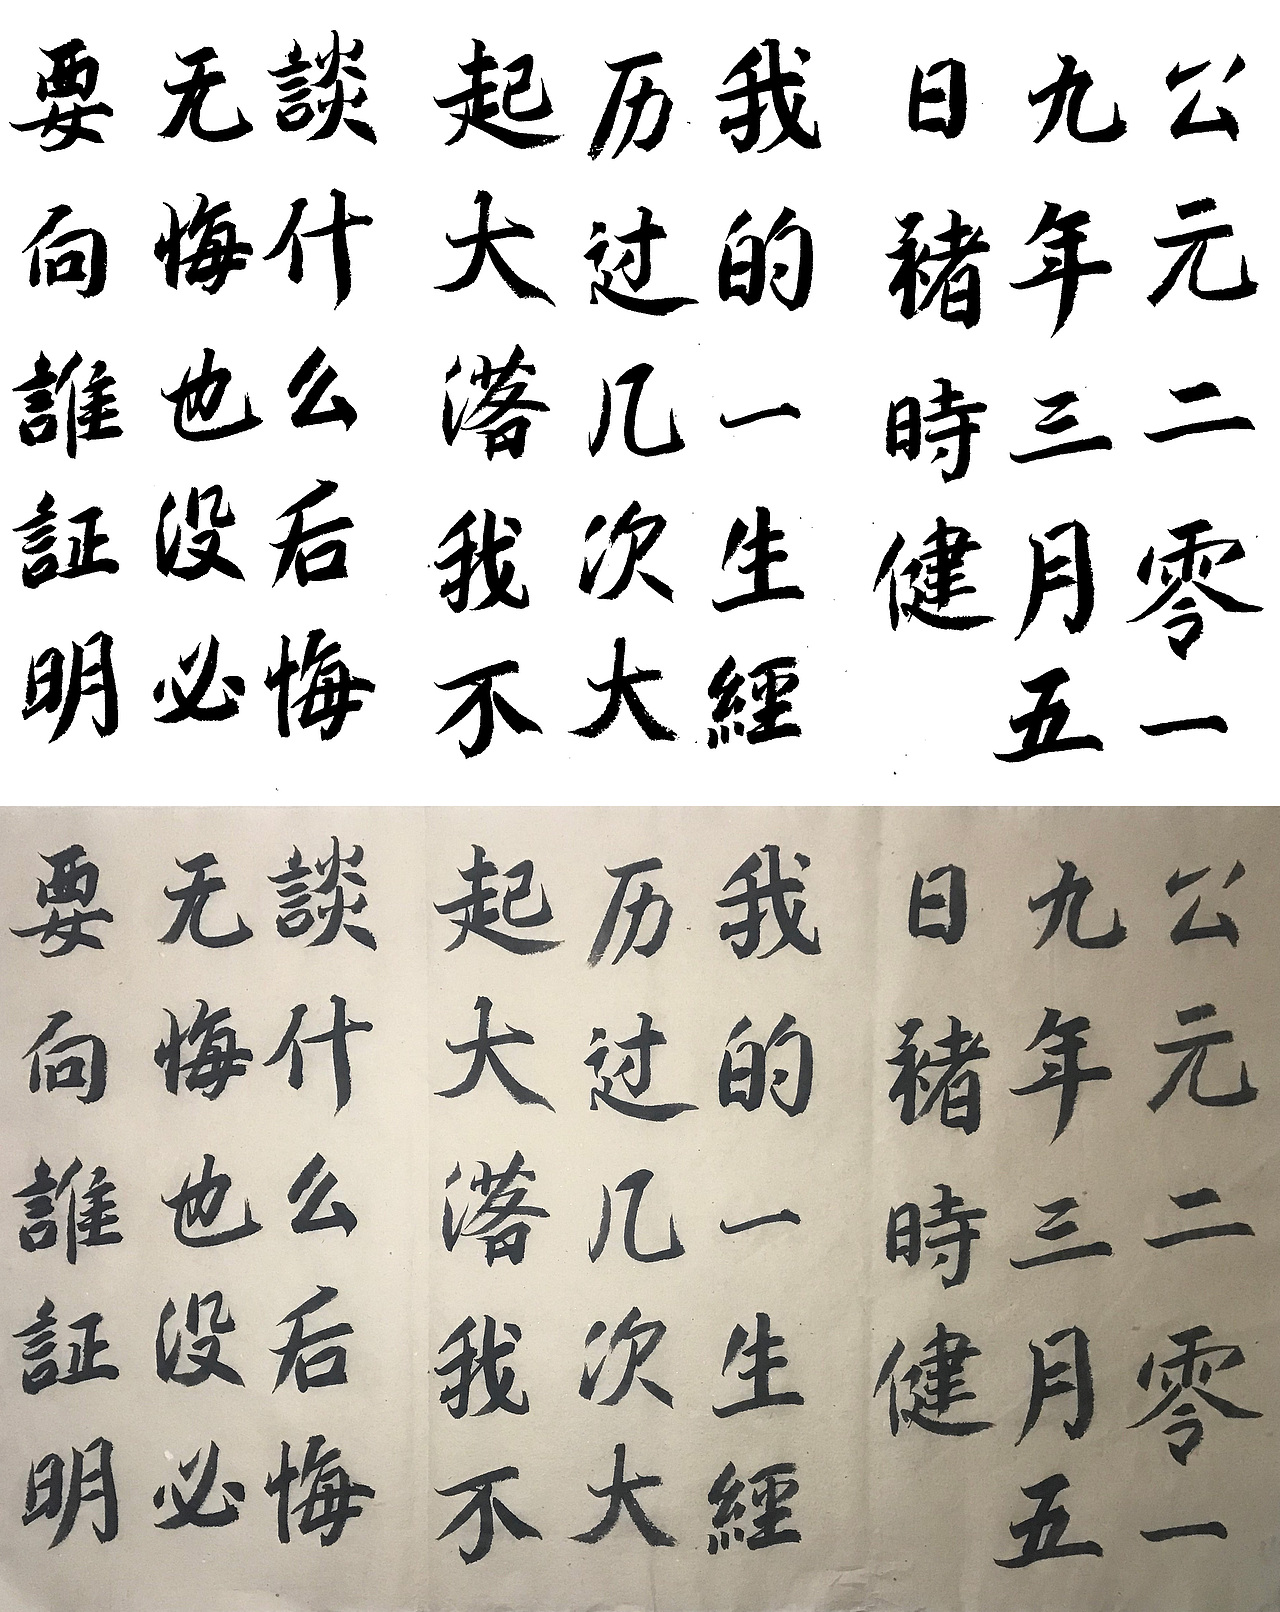 公元二零一
九年三月五
日褚時健
我的一生經
历过几次大
起大落我不
談什么后悔
无悔也没必
要向誰証明
公元二零一
九年三月五
日褚時健
我的一生經
历过几次大
起大落我不
談什么后悔
无悔也没必
要向誰証明